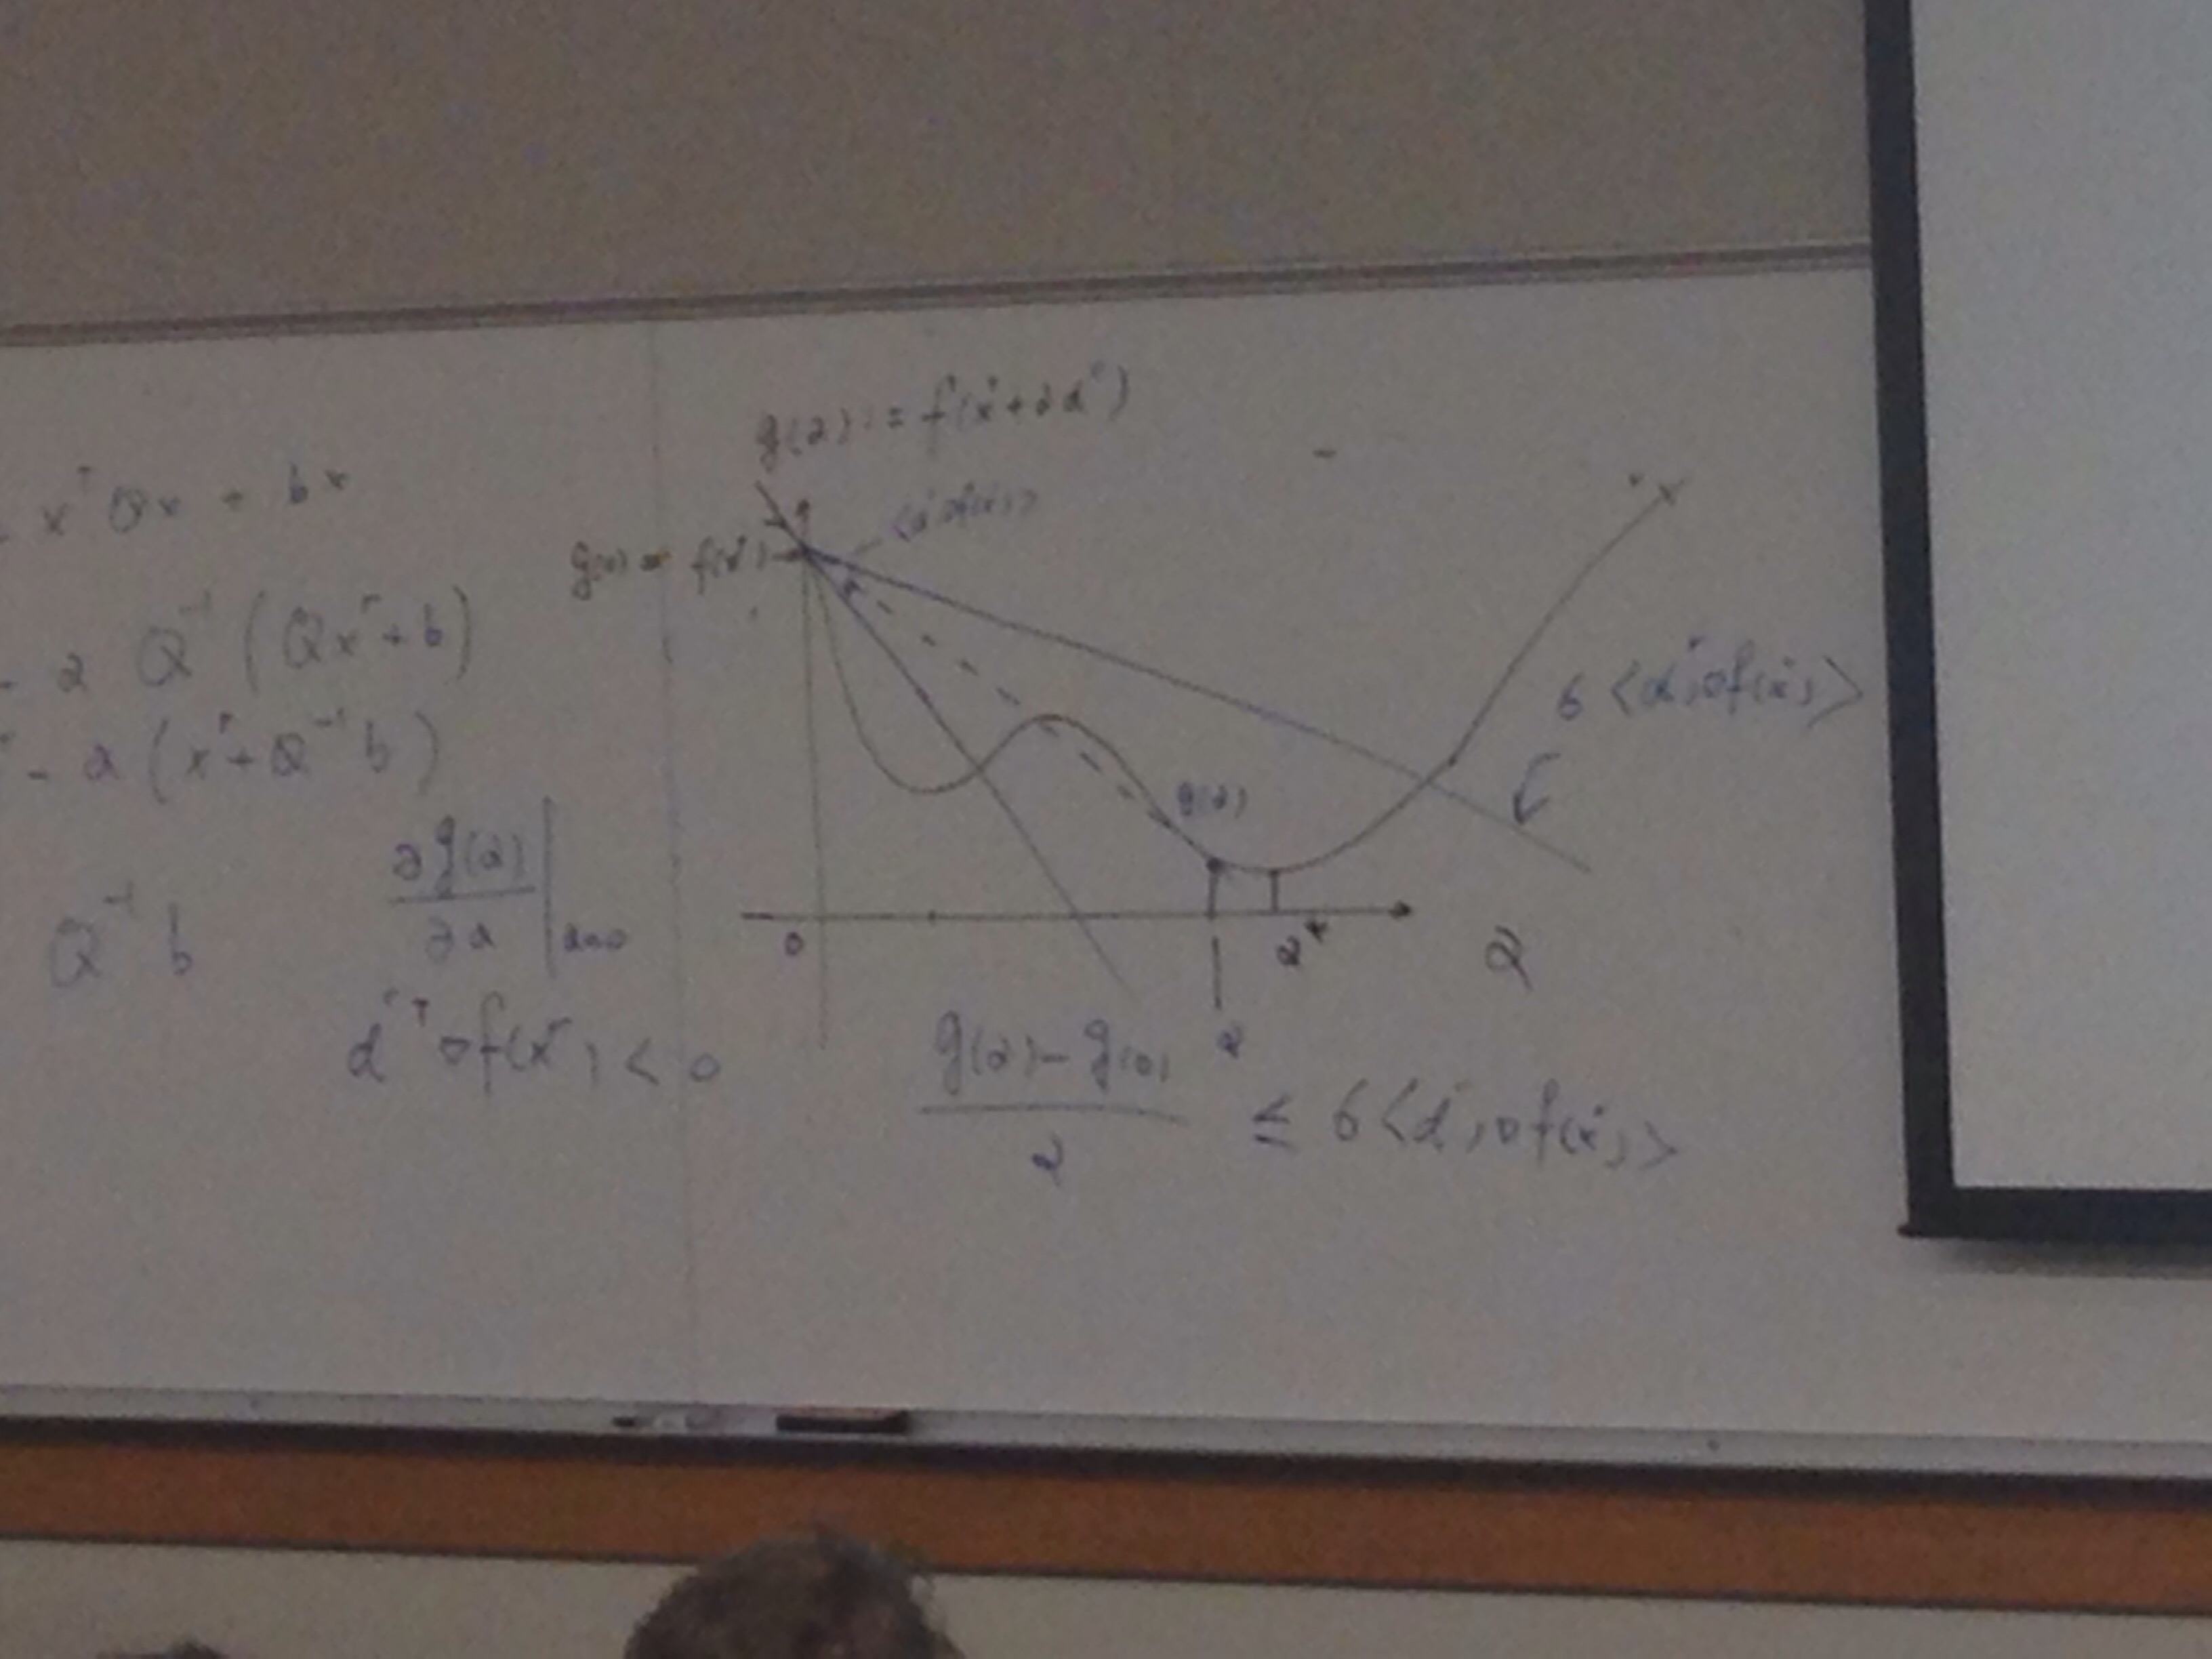 x^r Qx + bx
- α Q^{-1} (Qx^r + b)
- α (x^r + Q^{-1} b)
Q^{-1} b
∂g(α)
∂α | α=0
d^{rT} ∇f(x^r) < 0
g(α) := f(x^r + α d^r)
<d^r, ∇f(x^r)>
g(0) = f(x^r)
σ <d^r, ∇f(x^r)>
g(α)
0
α*
α
α
g(α) - g(0)
α
≤ σ <d^r, ∇f(x^r)>